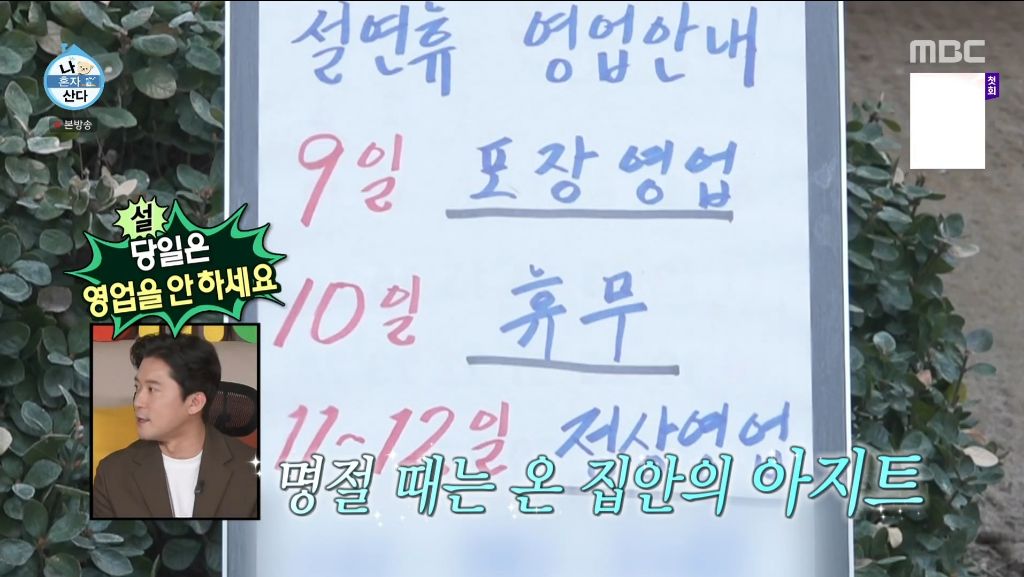 설연휴 영업안내
MBC
나
혼자
산다
본방송
첫회
9일 포장영업
설
당일은
영업을 안 하세요
10일 휴무
11~12일 정상영업
명절 때는 온 집안의 아지트